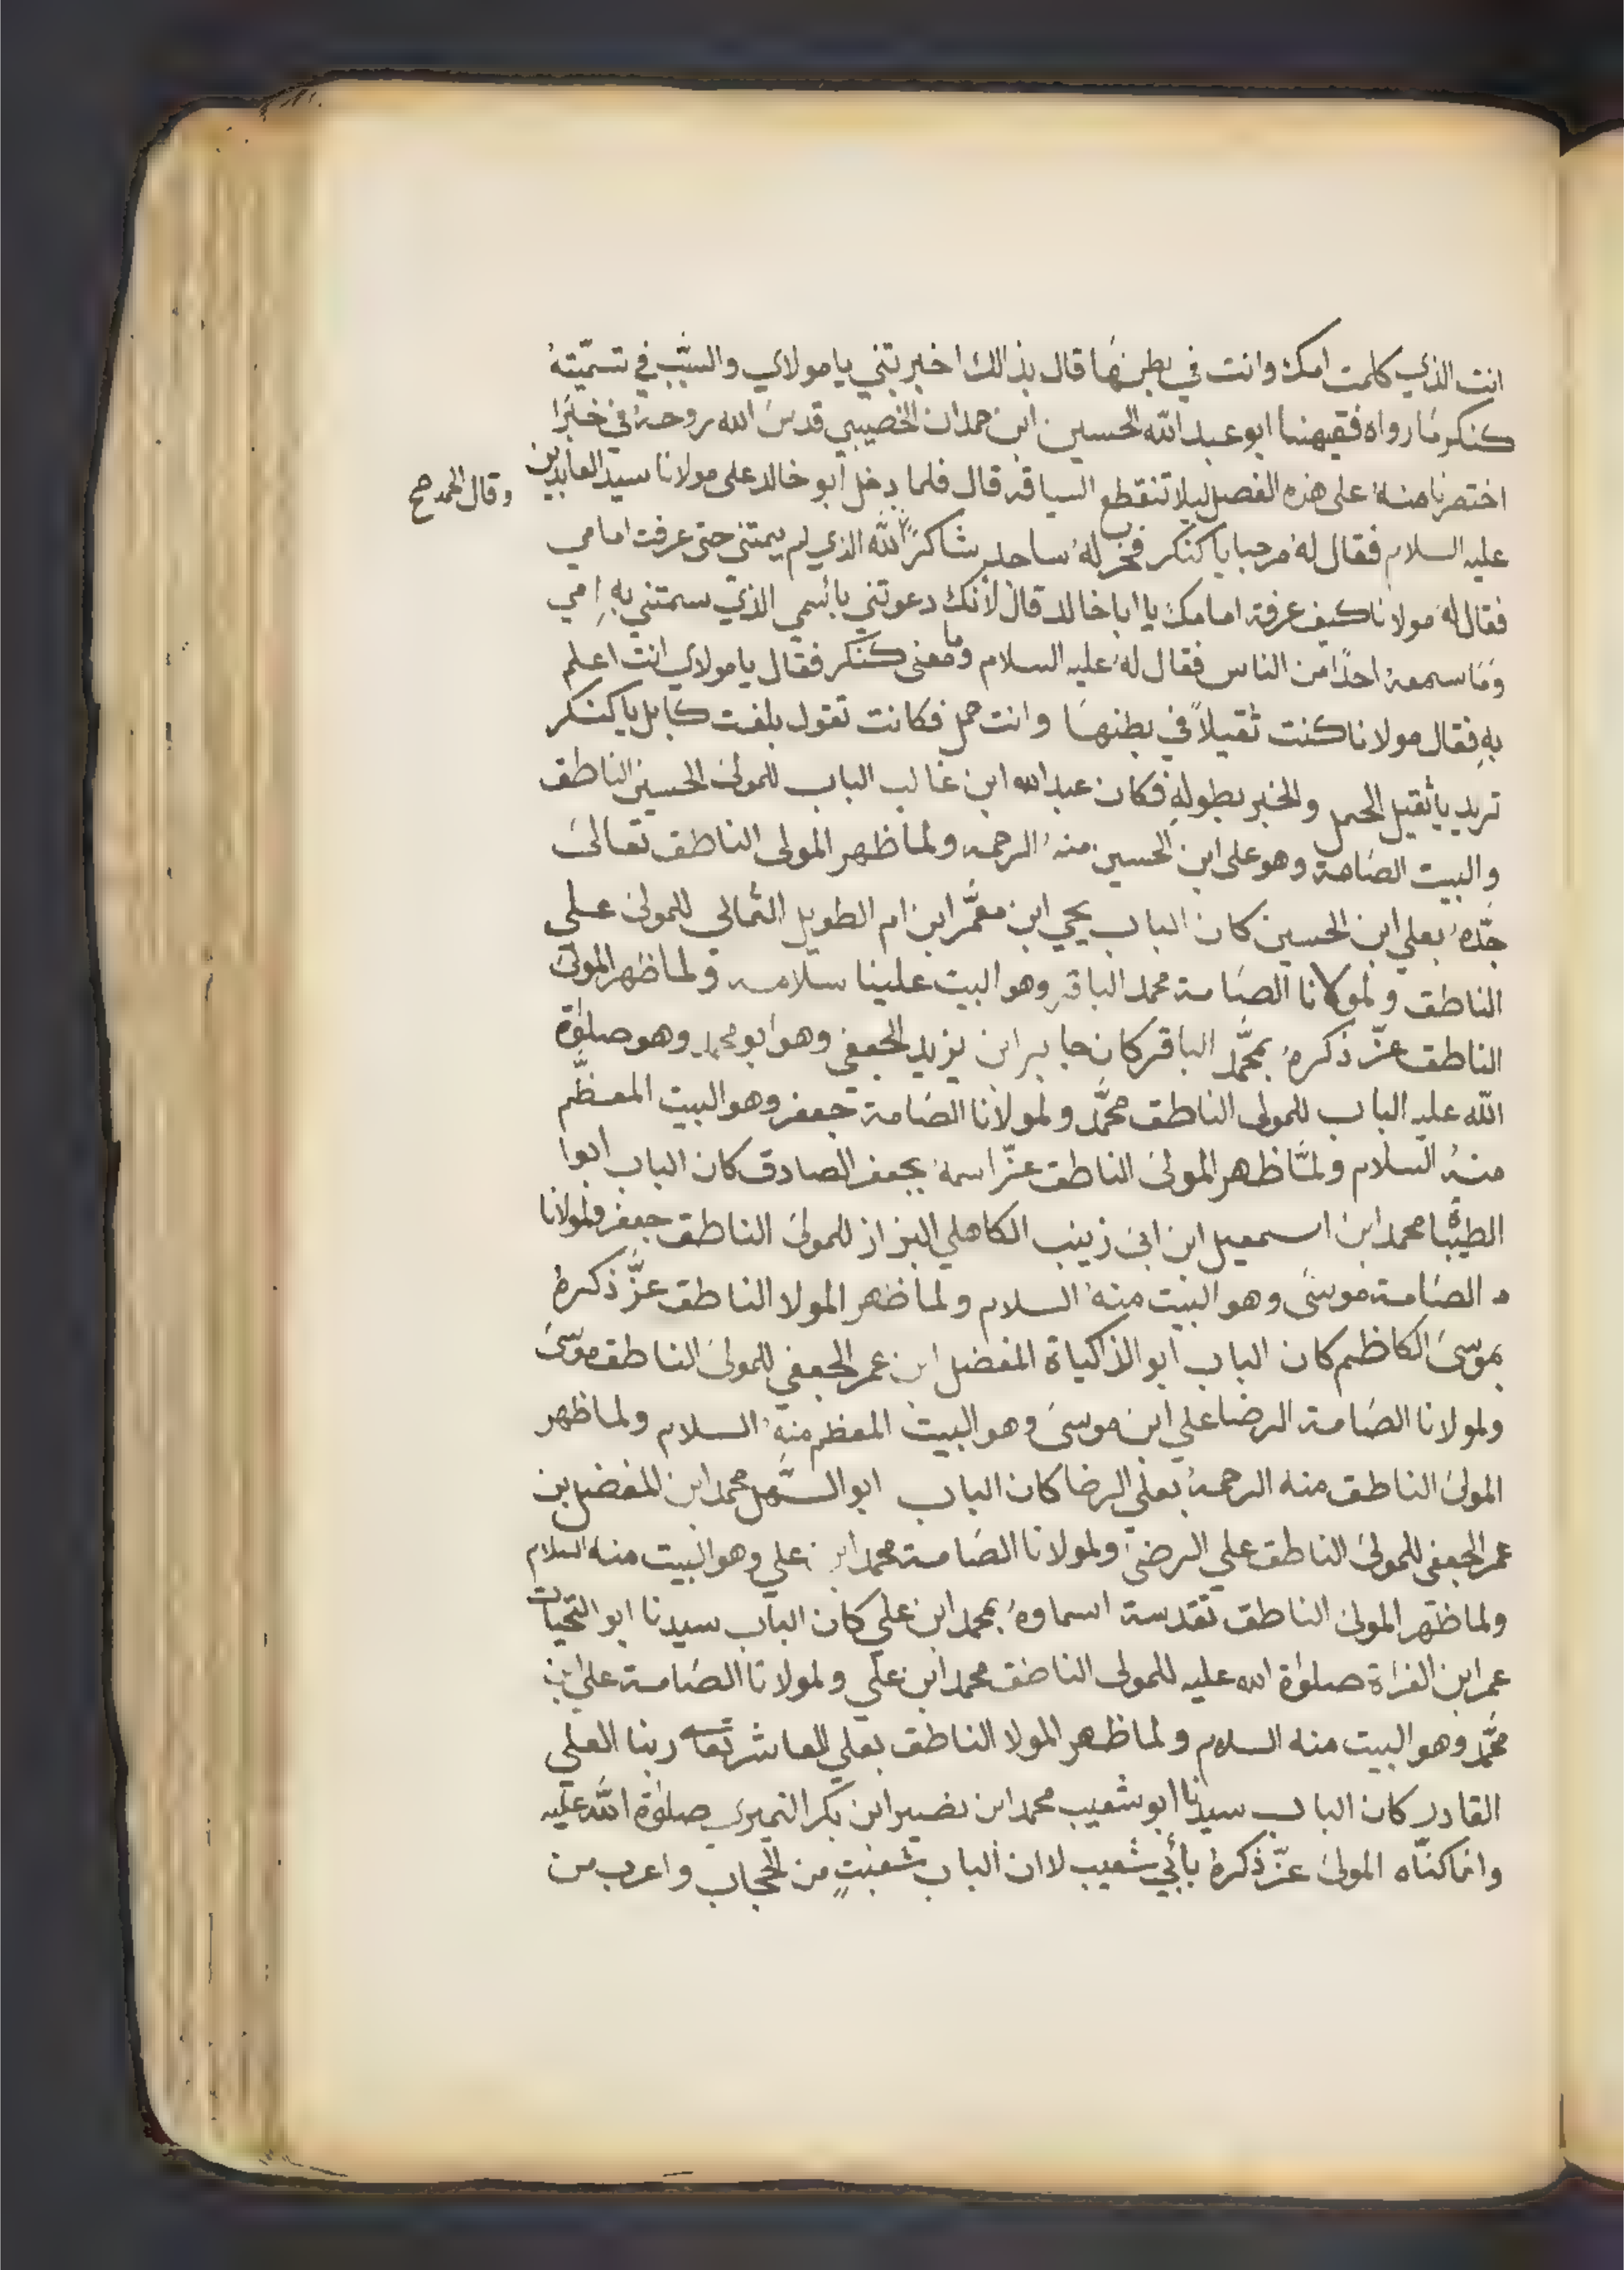 انت الذي كلمت امك وانت في بطنها قال بذالك اخبرتني يا مولاي والسبب في تسميته
كنكر ما رواه فقيهنا ابو عبد الله الحسين ابن حمدان الخصيبي قدس الله روحه في خبرًا
اختصرنا منه على هذه الفصل ليلا تنقطع السياقه قال فلما دخل ابو خالد على مولانا سيد العابدين
وقال الحمد صح
عليه السلام فقال له مرحبا يا كنكر فخر له ساجد شاكرًا لله الذي لم يمتني حتى عرفت امامي
فقال له مولانا كيف عرفة امامك يا ابا خالد قال لأنك دعوتني بأسمي الذي سمتني به امي
وما سمعه احدًا من الناس فقال له عليه السلام وما معنى كنكر فقال يا مولاي انت اعلم
به فقال مولانا كنت ثقيلاً في بطنها وانت حمل فكانت تقول بلغت كابل يا كنكر
تريد يا ثقيل الحمل والخبر بطوله فكان عبد الله ابن غالب الباب للمولى الحسين الناطق
والبيت الصامة وهو علي ابن الحسين منه الرحمه ولما ظهر المولى الناطق تعالى
جدّه بعلي ابن الحسين كان الباب يحيى ابن معمَّر ابن ام الطويل الثمالي للمولى علي
الناطق ولمولانا الصامة محمد الباقر وهو البيت علينا سلامه ولما ظهر المولى
الناطق عزّ ذكره بمحمَّد الباقر كان جابر ابن يزيد الجعفي وهو ابو محمد وهو صلوة
الله عليه الباب للمولى الناطق محمَّد ولمولانا الصامة جعفر وهو البيت المعظَّم
منه السلام ولمَّا ظهر المولى الناطق عزّ اسمه بجعفر الصادق كان الباب ابوا
الطيباة محمد ابن اسمعيل ابن ابي زينب الكاهلي البزاز للمولى الناطق جعفر ولمولانا
الصامة موسى وهو البيت منه السلام ولما ظهر المولا الناطق عزَّ ذكره
بموسى الكاظم كان الباب ابو الذاكياة المفضل ابن عمر الجعفي للمولى الناطق موسى
ولمولانا الصامة الرضا علي ابن موسى وهو البيت المعظم منه السلام ولما ظهر
المولى الناطق منه الرحمه بعلي الرضا كان الباب ابو السَّهل محمد ابن المفضل بن
عمر الجعفي للمولى الناطق علي الرضى ولمولانا الصامة محمد ابن علي وهو البيت منه السلام
ولما ظهر المولى الناطق تقدسة اسماوه بمحمد ابن علي كان الباب سيدنا ابو التحيات
عمر ابن الفراة صلوة الله عليه للمولى الناطق محمد ابن علي ولمولانا الصامة علي ابن
محمَّد وهو البيت منه السلام ولما ظهر المولا الناطق بعلي العاشر تعا ربنا العلي
القادر كان الباب سيدنا ابو شعيب محمد ابن نصير ابن بكر النميري صلوة الله عليه
وانما كنّاه المولى عزّ ذكره بأبي شعيب لا ان الباب شعبتٍ من الحجاب واعرب من